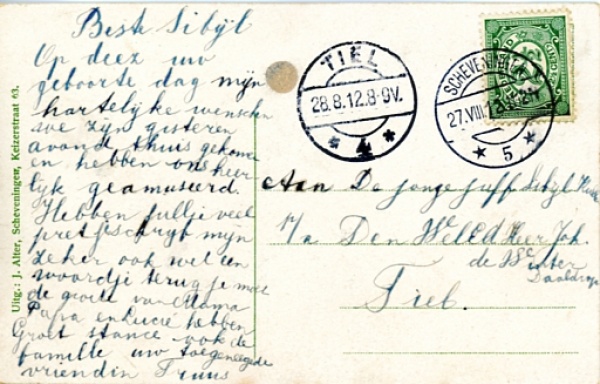 Beste Sibijl
Op deez uw
geboorte dag mijn
hartelijke wenschen
we zijn gisteren
avond thuis gekome
en hebben ons heer
lijk geamuseerd.
Hebben jullie veel
pret schrijf mijn
zeker ook wel een
woordje terug je moet
de groete van Mama
Papa en Lucie hebben
Groet stance ook de
familie uw toegeneegede
vriendin Truus
Uitg.: J. Alter, Scheveningen, Keizerstraat 63.
TIEL
28.8.12.8-9V.
4
SCHEVENINGEN
27.VIII.12
5
Aan De jonge juff Sibijl
p/a Den WelEd Heer Joh.
de
Daalderop
Tiel.